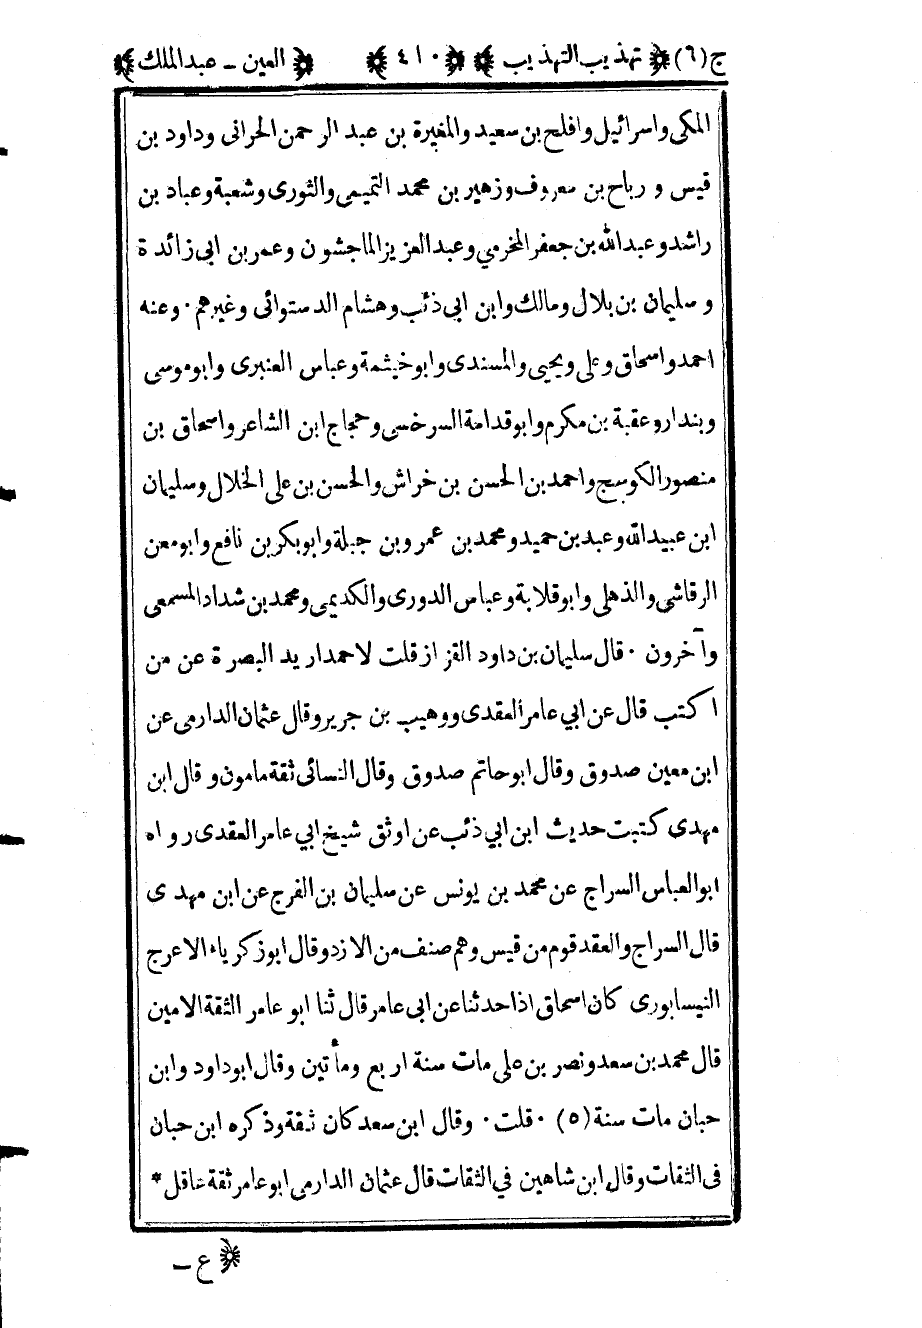 ج(٦) ﴿ تهذيب التهذيب ﴾ ﴿ ٤١٠ ﴾ ﴿ العين ـ عبدالملك ﴾
المكى واسرائيل وافلح بن سعيد والمغيرة بن عبد الرحمن الحرانى وداود بن
قيس و رباح بن معروف وزهير بن محمد التميمى والثورى وشعبة وعباد بن
راشد وعبدالله بن جعفر المخرمي وعبدالعزيز الماجشون وعمر بن ابى زائدة
و سليمان بن بلال ومالك وابن ابى ذئب وهشام الدستوائى وغيرهم ٠ وعنه
احمد واسحاق وعلى ويحيى والمسندى وابو خيثمة وعباس العنبرى وابوموسى
وبندار وعقبة بن مكرم وابو قدامة السرخسى وحجاج ابن الشاعر واسحاق بن
منصور الكوسج واحمد بن الحسن بن خراش والحسن بن على الخلال وسليمان
ابن عبيدالله وعبد بن حميد ومحمد بن عمرو بن جبلة وابو بكر بن نافع وابومعن
الرقاشى والذهلى وابو قلابة وعباس الدورى والكديمى ومحمد بن شداد المسمعى
وآخرون ٠ قال سليمان بن داود القزاز قلت لاحمد اريد البصرة عن من
اكتب قال عن ابي عامر العقدى ووهيب بن جرير وقال عثمان الدارمى عن
ابن معين صدوق وقال ابو حاتم صدوق وقال النسائى ثقة مامون وقال ابن
مهدى كتبت حديث ابن ابي ذئب عن اوثق شيخ ابي عامر العقدى رواه
ابوالعباس السراج عن محمد بن يونس عن سليمان بن الفرج عن ابن مهدى
قال السراج والعقد قوم من قيس وهم صنف من الازد وقال ابو زكرياء الاعرج
النيسابورى كان اسحاق اذا حدثنا عن ابى عامر قال ثنا ابو عامر الثقة الامين
قال محمد بن سعد ونصر بن على مات سنة اربع ومأتين وقال ابو داود وابن
حبان مات سنة (٥) ٠ قلت ٠ وقال ابن سعد كان ثقة وذكره ابن حبان
فى الثقات وقال ابن شاهين في الثقات قال عثمان الدارمى ابو عامر ثقة عاقل *
﴿ ع ـ